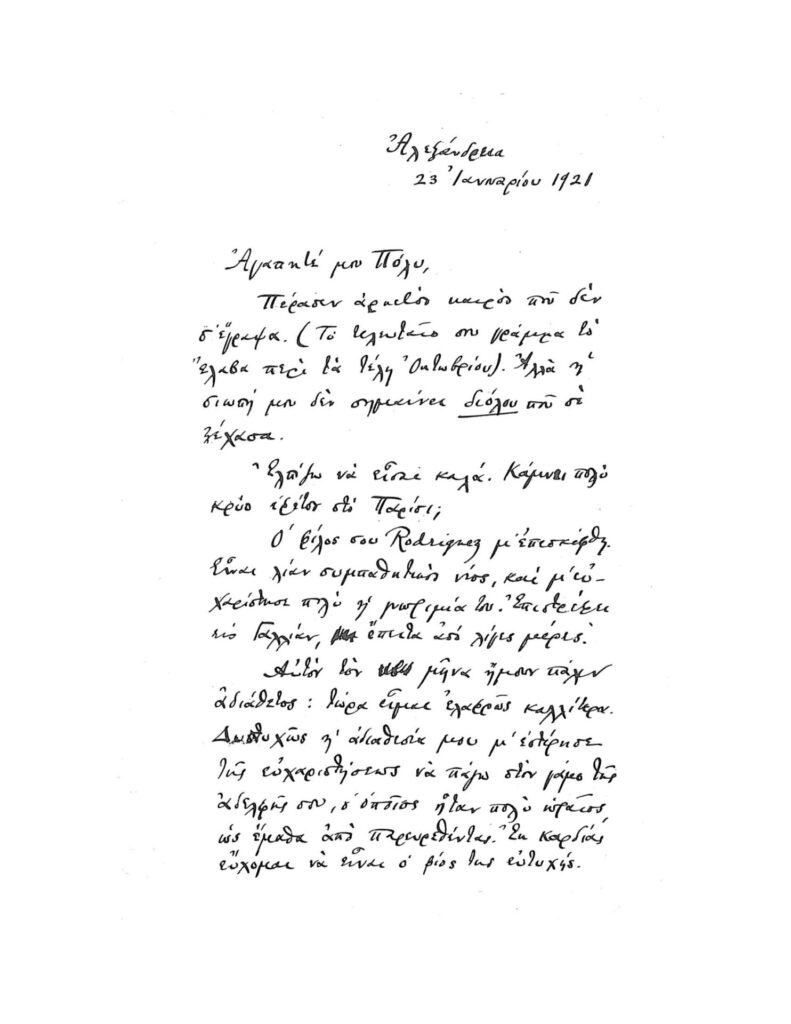 Ἀλεξάνδρεια
23 Ἰανναρίου 1921
Ἀγαπητέ μου Πόλυ,
Πέρασεν ἀρκετὸς καιρὸς ποῦ δὲν
σ' ἔγραψα. (Τὸ τελευταῖο σου γράμμα τὸ
ἔλαβα περὶ τὰ τέλη Ὀκτωβρίου). Ἀλλὰ ἡ
σιωπή μου δὲν σημαίνει διόλου ποῦ σὲ
ξέχασα.
Ἐλπίζω νὰ εἶσαι καλά. Κάμνει πολὺ
κρύο ἐφέτος στὸ Παρίσι;
Ὁ φίλος σου Rodriguez μ' ἐπισκέφθη.
Εἶναι λίαν συμπαθητικὸς νέος, καὶ μ' εὐ-
χαρίστησε πολὺ ἡ γνωριμία του. Ἐπιστρέφει
εἰς Γαλλίαν, ἔπειτα ἀπὸ λίγες μέρες.
Αὐτὸν τὸν μῆνα ἤμουν πάλιν
ἀδιάθετος: τώρα εἶμαι ἐλαφρῶς καλλίτερα.
Δυστυχῶς ἡ ἀδιαθεσία μου μ' ἐστέρησε
τῆς εὐχαριστήσεως νὰ πάγω στὸν γάμο τῆς
ἀδελφῆς σου, ὁ ὁποῖος ἦταν πολὺ ὡραῖος,
ὡς ἔμαθα ἀπὸ παρευρεθέντας. Ἐκ καρδίας
εὔχομαι νὰ εἶναι ὁ βίος της εὐτυχής.